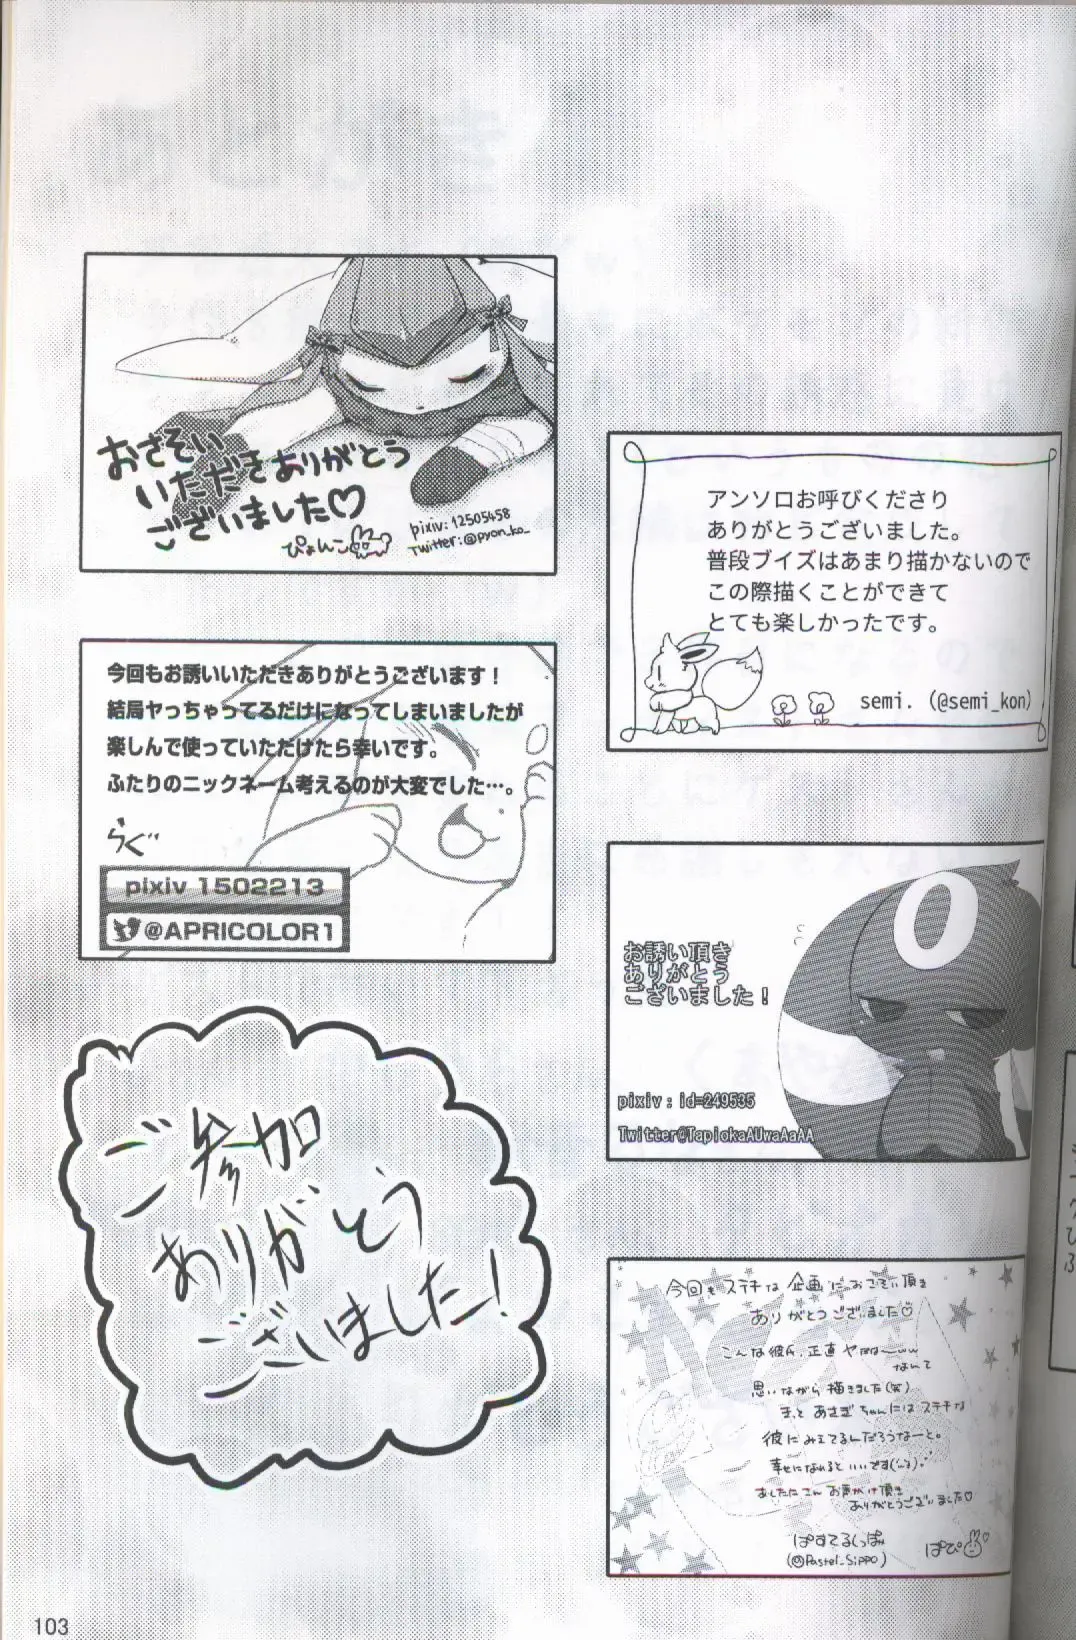 おさそい
いただきありがとう
ございました♡
ぴょんこ
pixiv: 12505458
Twitter: @pyon_ko_
アンソロお呼びくださり
ありがとうございました。
普段ブイズはあまり描かないので
この際描くことができて
とても楽しかったです。
semi. (@semi_kon)
今回もお誘いいただきありがとうございます！
結局ヤっちゃってるだけになってしまいましたが
楽しんで使っていただけたら幸いです。
ふたりのニックネーム考えるのが大変でした…。
らぐ
pixiv 1502213
@APRICOLOR1
お誘い頂き
ありがとう
ございました！
pixiv : id=249535
Twitter@TapiokaAUwaAaAA
ご参加
ありがとう
ございました！
今回もステキな企画におさそい頂き
ありがとうございました
こんな彼氏、正直ヤだな〜ww
なんて
思いながら描きました(笑)
きっとあさぎちゃんにはステキな
彼にみえてるんだろうなーと。
幸せになれるといいです
お声がけ頂き
ありがとうございました♡
ぱすてるしっぽ
(@Pastel_Sippo)
ぱぴ
103